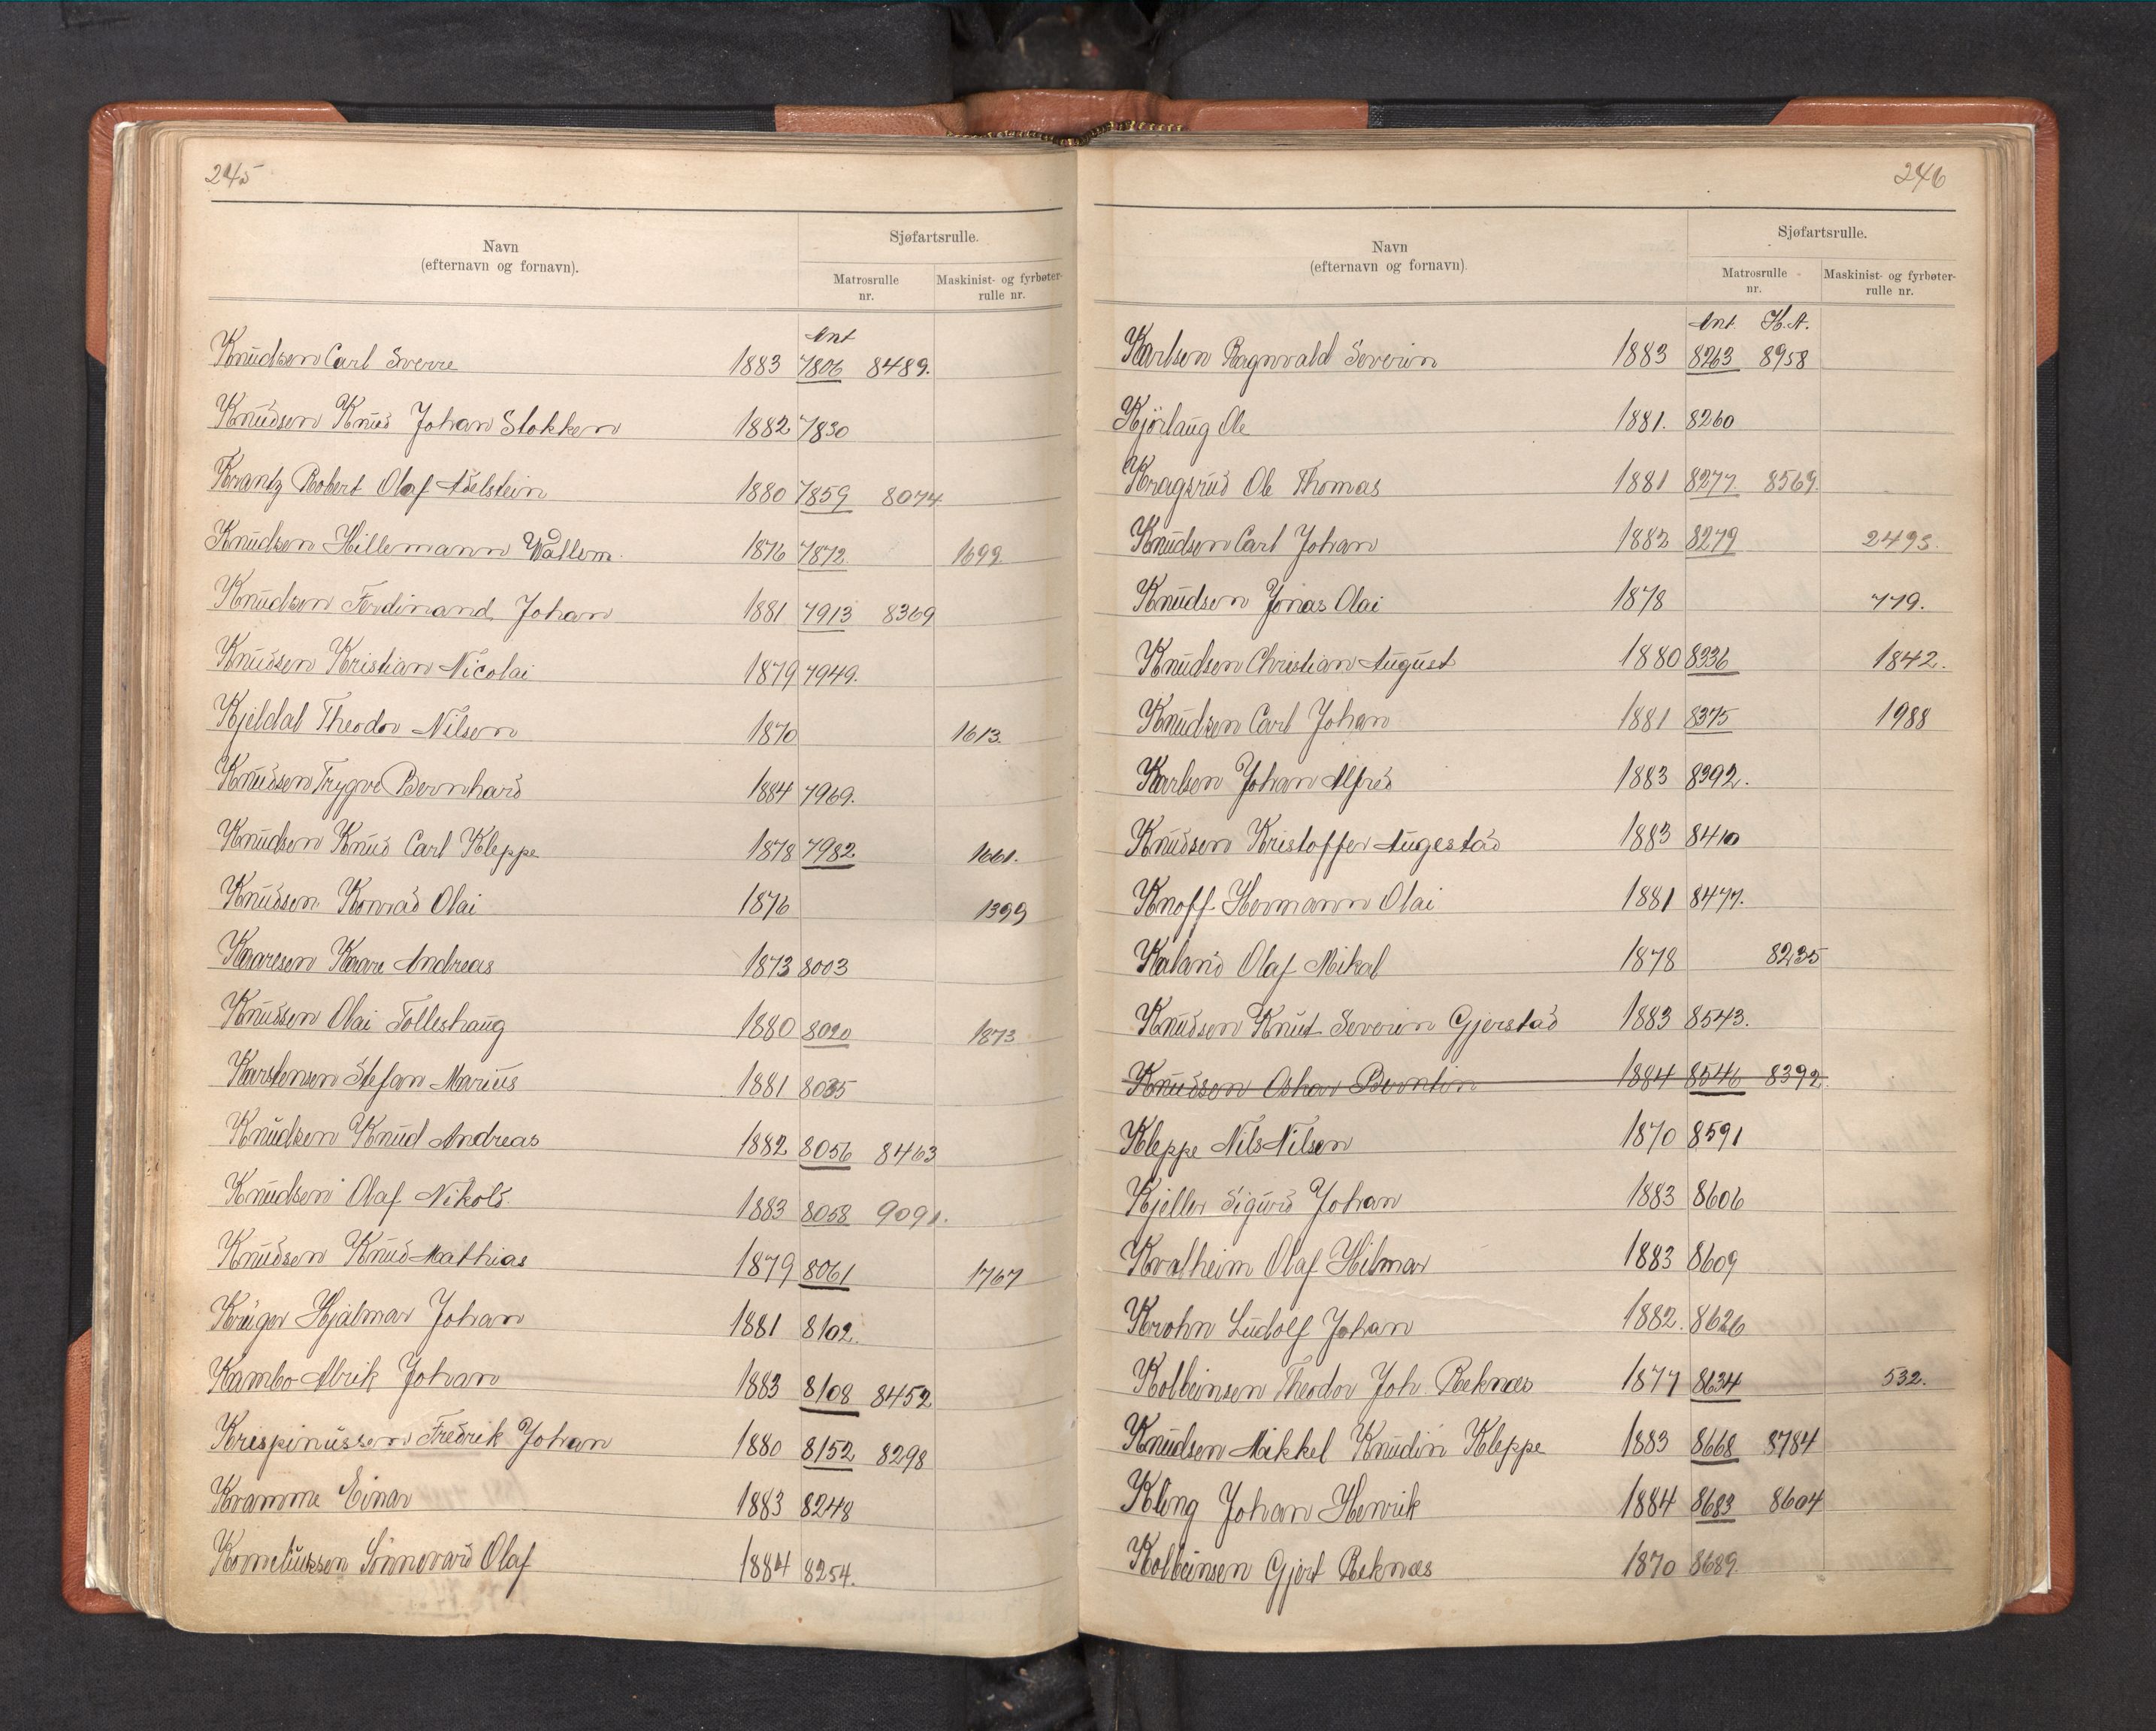 245
Navn
(efternavn og fornavn).
Sjøfartsrulle.
Matrosrulle
nr.
Maskinist- og fyrbøter-
rulle nr.
Ant
Knudsen Carl Sverre 1883 7806 8489.
Knudsen Knud Johan Stokken 1882 7830
Krantz Robert Olaf Adelstein 1880 7859 8074
Knudsen Hillemann Wallem. 1876 7872 1692
Knudsen Ferdinand Johan 1881 7913 8369
Knudsen Kristian Nicolai 1879 7949.
Kjeldal Theodor Nilsen 1870 1613.
Knudsen Trygve Bernhard 1884 7969.
Knudsen Knud Carl Kleppe 1878 7982 1661.
Knudsen Konrad Olai 1876 1399
Kaaresen Kaare Andreas 1873 8003
Knudsen Olai Tolleshaug 1880 8020 1873
Karstensen Stefan Marius 1881 8035
Knudsen Knud Andreas 1882 8056 8463
Knudsen Olaf Nikold. 1883 8058 9091.
Knudsen Knud Mathias 1879 8061 1767
Krüger Hjalmar Johan 1881 8102.
Kambo Alrik Johan 1883 8108 8452
Krispinussen Fredrik Johan 1880 8152 8298
Kramme Einar 1883 8248
Korneliussen Sönnevard Olaf 1884 8254.
246
Navn
(efternavn og fornavn).
Sjøfartsrulle.
Matrosrulle
nr.
Maskinist- og fyrbøter-
rulle nr.
Ant. H.A.
Karlsen Ragnvald Severin 1883 8263 8958
Kjörlaug Ole 1881. 8260
Kragsrud Ole Thomas 1881 8277. 8569.
Knudsen Carl Johan 1882 8279 2493.
Knudsen Jonas Olai 1878 779.
Knudsen Christian August 1880 8336 1842.
Knudsen Carl Johan 1881 8375 1988
Karlsen Johan Alfred 1883 8392.
Knudsen Kristoffer Augestad 1883 8410
Knoff Hermann Olai 1881 8477.
Kaland Olaf Mikal 1878 8235
Knudsen Knut Severin Gjerstad 1883 8543.
Knudsen Oskar Berntin 1884 8546 8392.
Kleppe Nils Nilsen 1870 8591
Kjeller Sigurd Johan 1883 8606
Kvalheim Olaf Hilmar 1883 8609
Krohn Ludolf Johan 1882. 8626
Kolbeinsen Theodor Joh. Reknæs 1877 8634 532.
Knudsen Mikkel Knudin Kleppe 1883 8668 8784
Kling Johan Henrik 1884 8683 8604
Kolbeinsen Gjert Reknæs 1870 8689.